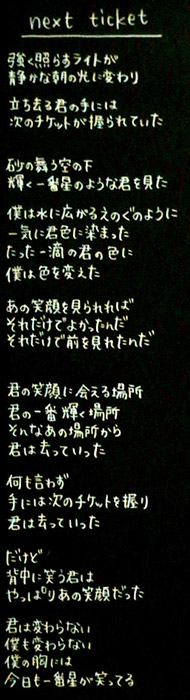 next ticket
強く照らすライトが
静かな朝の光に変わり
立ち去る君の手には
次のチケットが握られていた
砂の舞う空の下
輝く一番星のような君を見た
僕は水に広がるえのぐのように
一気に君色に染まった
たった一滴の君の色に
僕は色を変えた
あの笑顔を見られれば
それだけでよかったんだ
それだけで前を見れたんだ
君の笑顔に会える場所
君の一番輝く場所
そんなあの場所から
君は去っていった
何も言わず
手には次のチケットを握り
君は去っていった
だけど
背中に笑う君は
やっぱりあの笑顔だった
君は変わらない
僕も変わらない
僕の胸には
今日も一番星が笑ってる